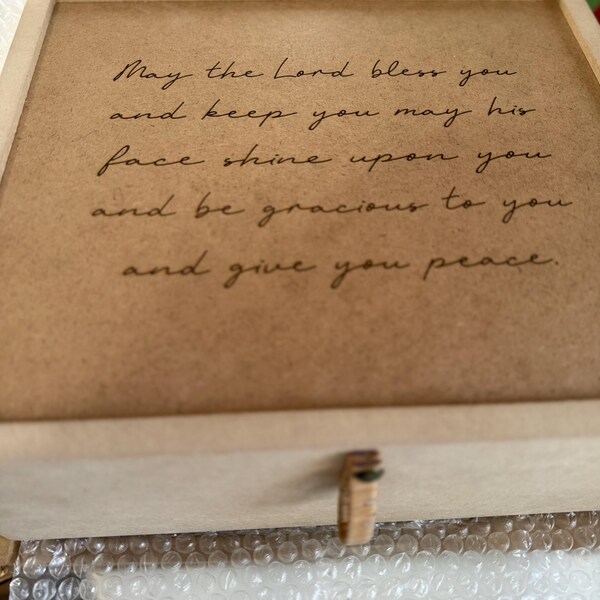 May the Lord bless you
and keep you may his
face shine upon you
and be gracious to you
and give you peace.